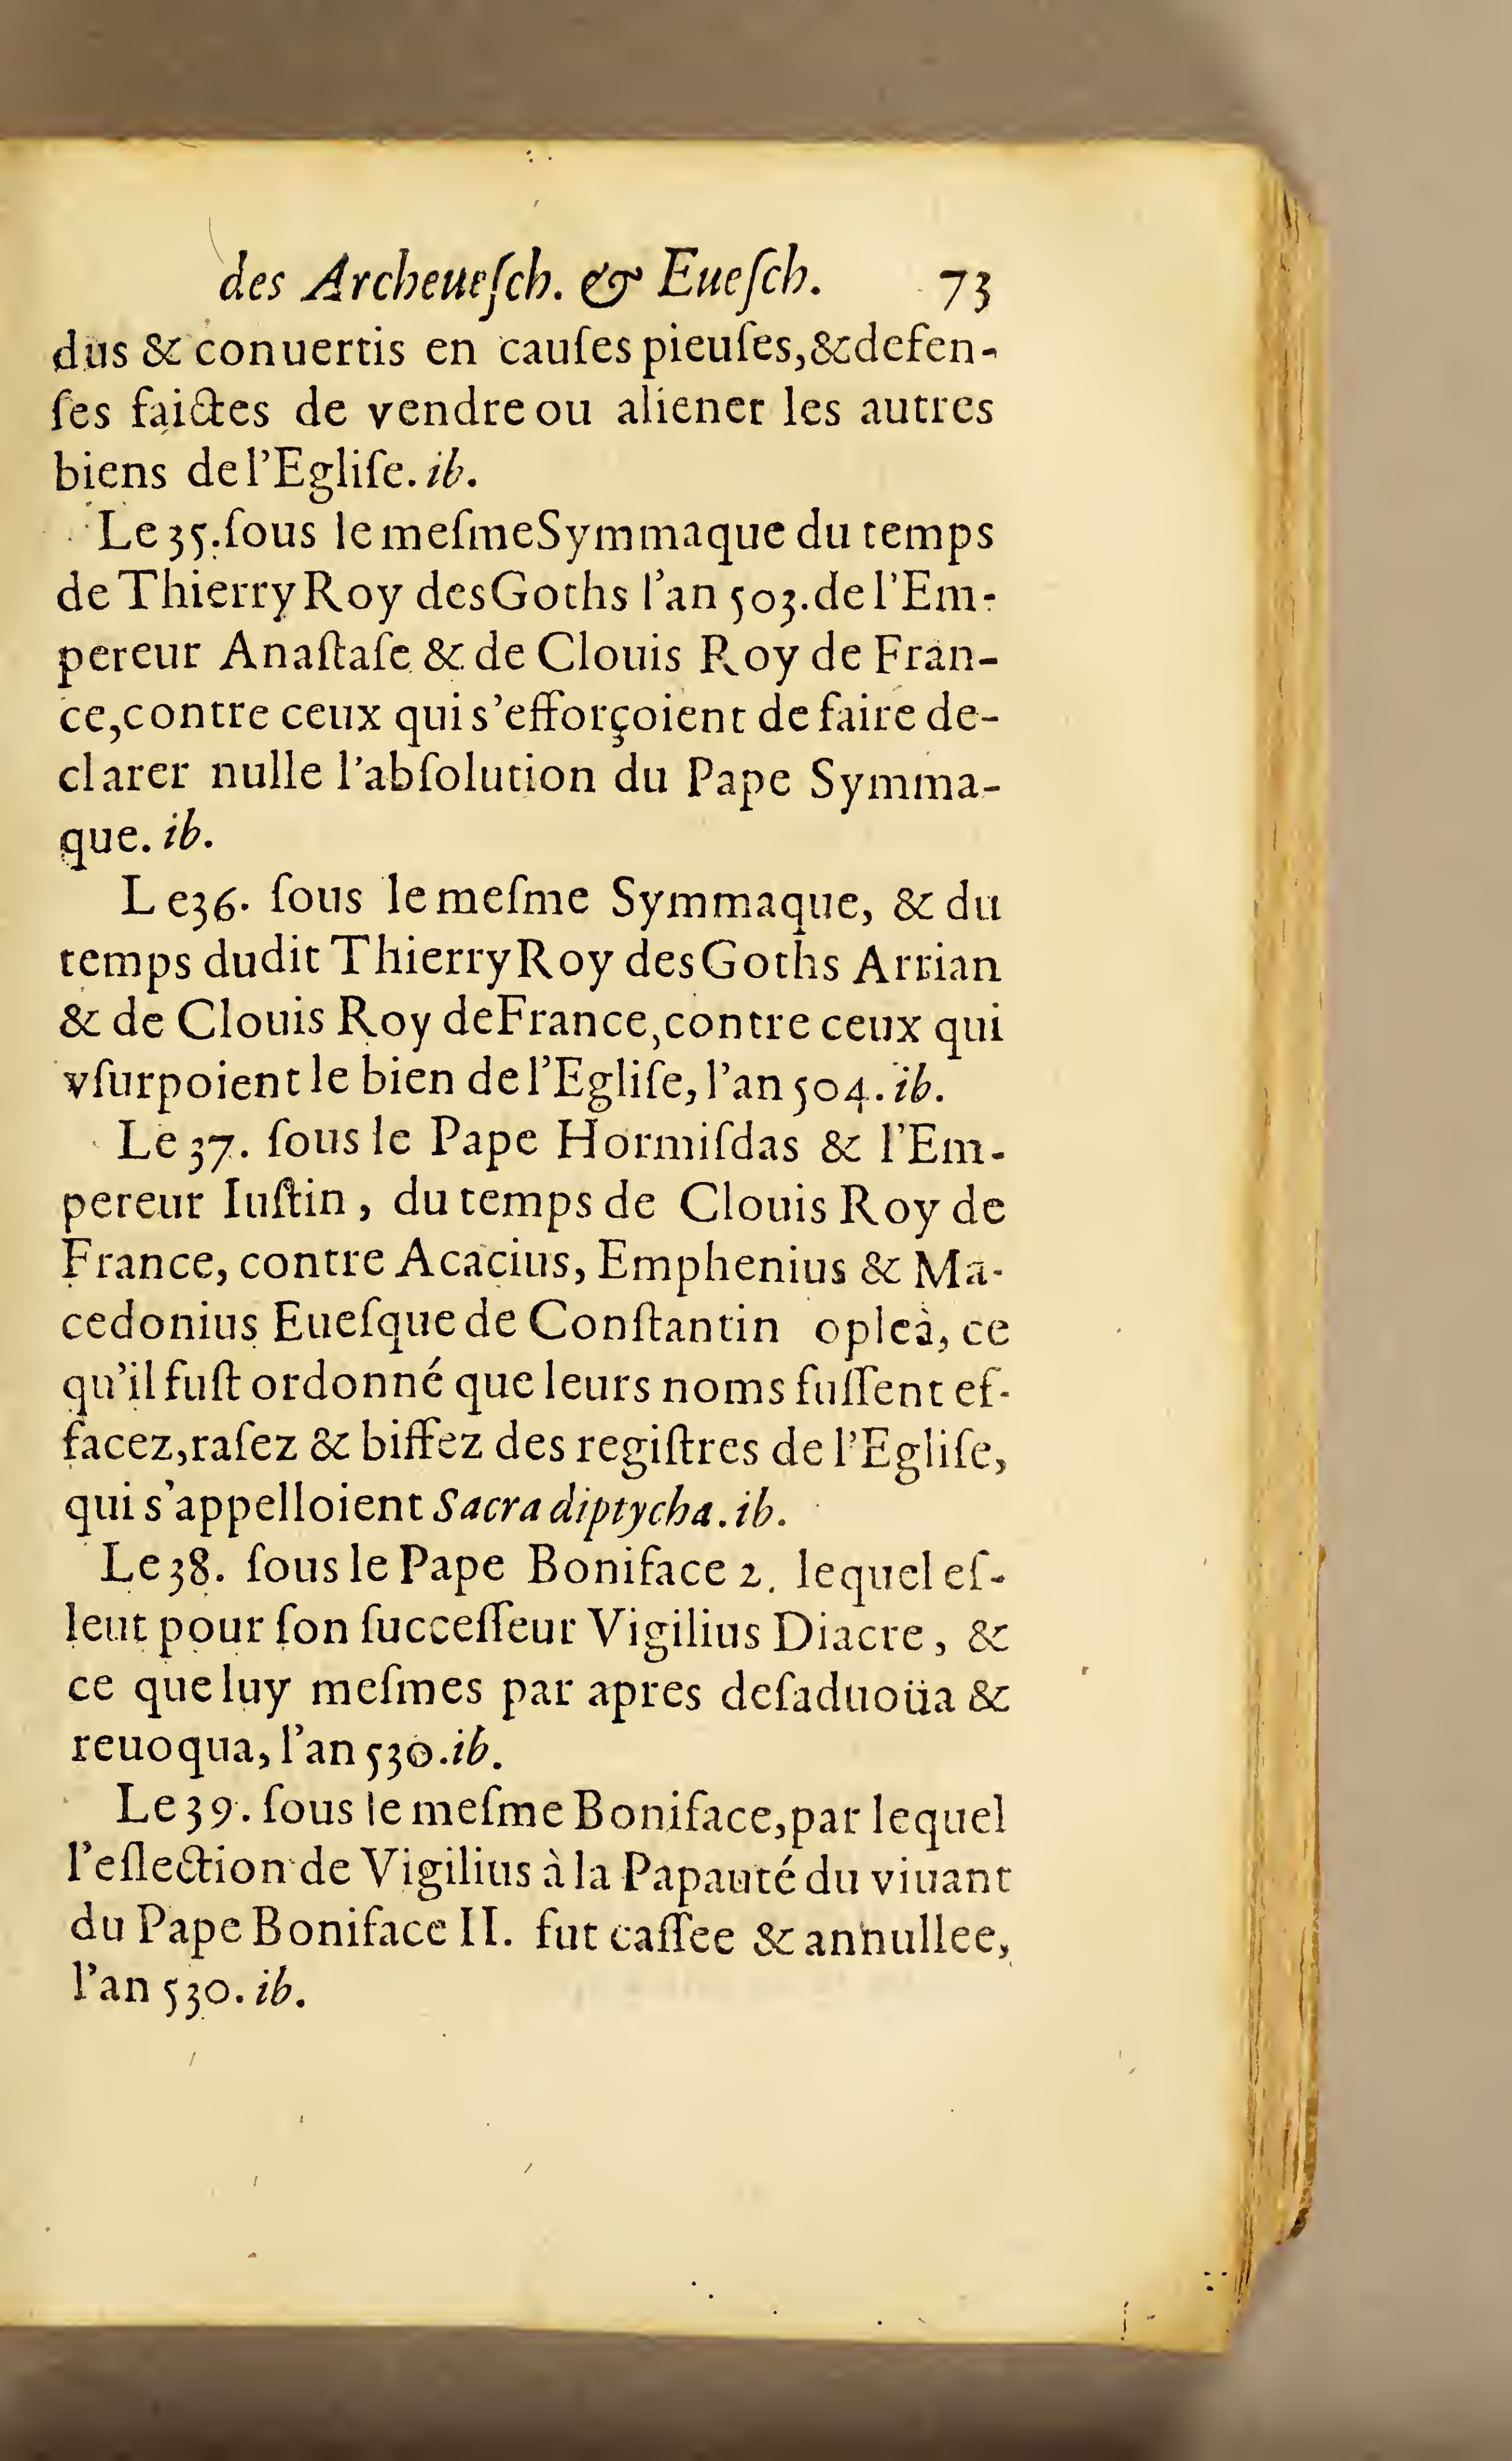 des Archeueſch. & Eueſch. 73
dus & conuertis en cauſes pieuſes, & defen-
ſes faictes de vendre ou aliener les autres
biens de l'Egliſe. ib.
Le 35. ſous le meſme Symmaque du temps
de Thierry Roy des Goths l'an 503. de l'Em-
pereur Anaſtaſe & de Clouis Roy de Fran-
ce, contre ceux qui s'efforçoient de faire de-
clarer nulle l'abſolution du Pape Symma-
que. ib.
Le 36. ſous le meſme Symmaque, & du
temps dudit Thierry Roy des Goths Arrian
& de Clouis Roy de France, contre ceux qui
vſurpoient le bien de l'Egliſe, l'an 504. ib.
Le 37. ſous le Pape Hormiſdas & l'Em-
pereur Iuſtin, du temps de Clouis Roy de
France, contre Acacius, Emphenius & Ma-
cedonius Eueſque de Conſtantin opleà, ce
qu'il fuſt ordonné que leurs noms fuſſent ef-
facez, raſez & biffez des regiſtres de l'Egliſe,
qui s'appelloient Sacra diptycha. ib.
Le 38. ſous le Pape Boniface 2. lequel eſ-
leut pour ſon ſucceſſeur Vigilius Diacre, &
ce que luy meſmes par apres deſaduoüa &
reuoqua, l'an 530. ib.
Le 39. ſous le meſme Boniface, par lequel
l'eſlection de Vigilius à la Papauté du viuant
du Pape Boniface II. fut caſſee & annullee,
l'an 530. ib.